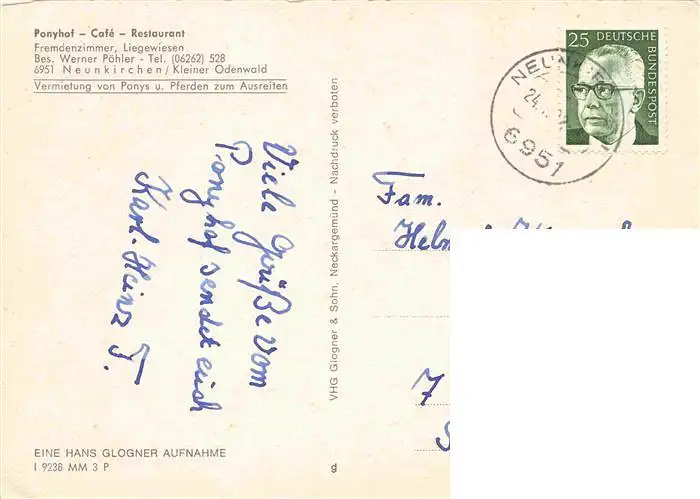 Ponyhof – Café – Restaurant
Fremdenzimmer, Liegewiesen
Bes. Werner Pöhler - Tel. (06262) 528
6951 Neunkirchen/Kleiner Odenwald
Vermietung von Ponys u. Pferden zum Ausreiten
25 DEUTSCHE
BUNDESPOST
6951
Viele Grüße vom
Ponyhof sendet euch
Karl-Heinz T.
VHG Glogner & Sohn, Neckargemünd - Nachdruck verboten
Fam.
7
EINE HANS GLOGNER AUFNAHME
I 9238 MM 3 P
g